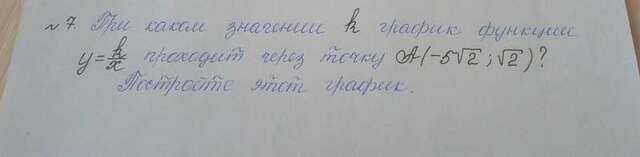 №7. При каком значении k график функции
y=k/x проходит через точку A(-5√2;√2)?
Постройте этот график.